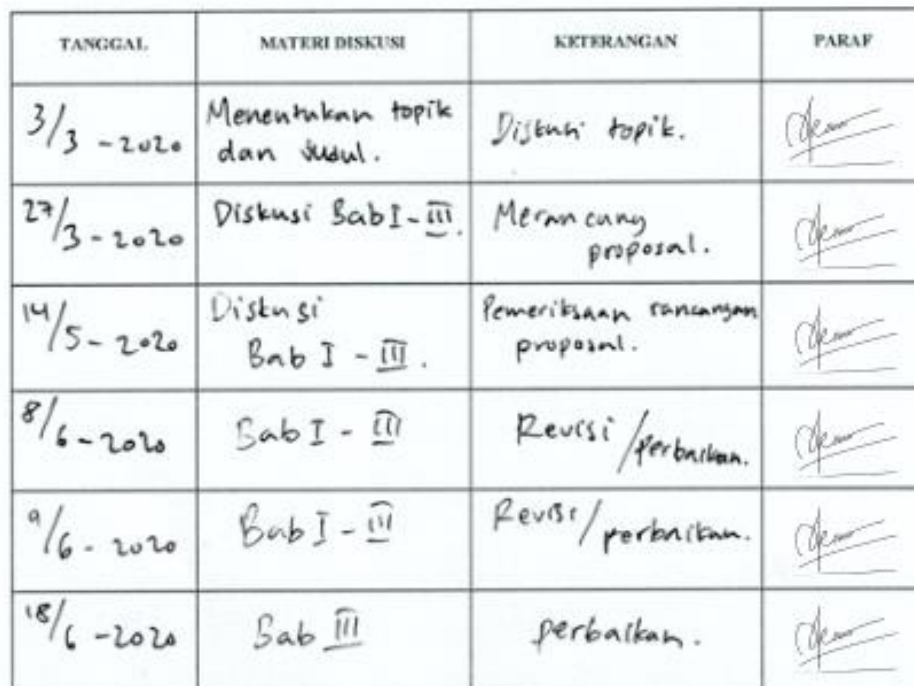 TANGGAL MATERI DISKUSI KETERANGAN PARAF
3/3 - 2020 Menentukan topik Diskusi topik.
dan Judul.
27/3 - 2020 Diskusi Bab I - III. Merancang
proposal.
14/5 - 2020 Diskusi Pemeriksaan rancangan
Bab I - III. proposal.
8/6 - 2020 Bab I - III Revisi / perbaikan.
9/6 - 2020 Bab I - III Revisi / perbaikan.
18/6 - 2020 Bab III perbaikan.